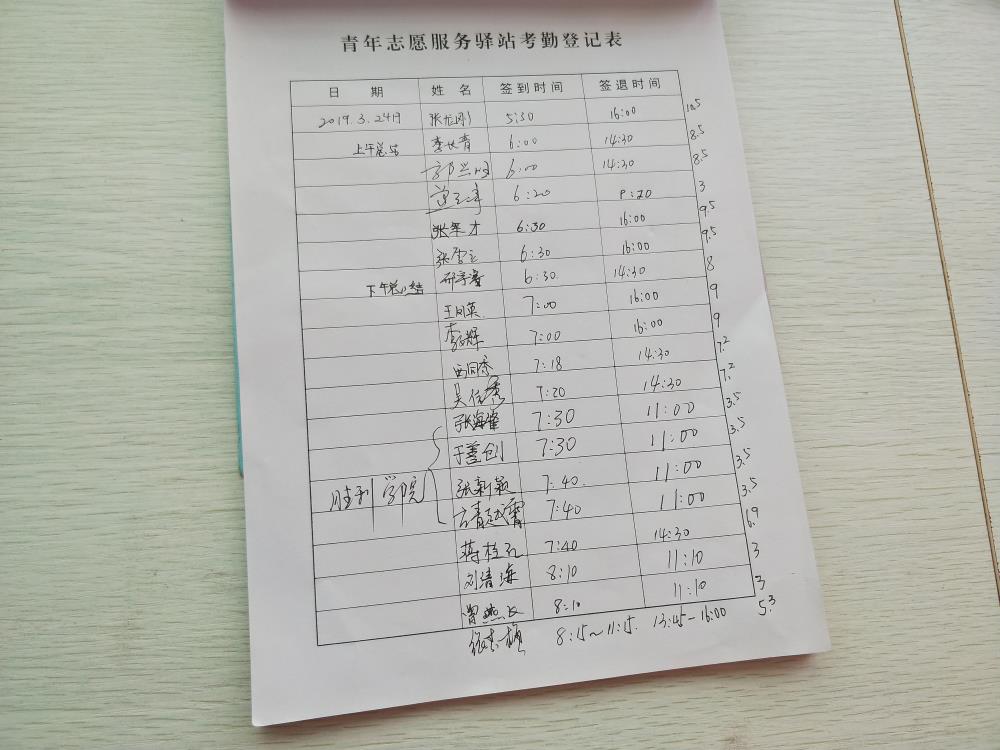 青年志愿服务驿站考勤登记表
日 期 姓 名 签到时间 签退时间
2019.3.24日 5:30 16:00 10.5
上午总结 李长青 6:00 14:30 8.5
6:00 14:30 8.5
6:20 9:20 3
张军才 6:30 16:00 9.5
张 6:30 16:00 9.5
下午总结 6:30 14:30 8
王同英 7:00 16:00 9
李 辉 7:00 16:00 9
7:18 14:30 7.2
吴 秀 7:20 14:30 7.2
张海峰 7:30 11:00 3.5
于善创 7:30 11:00 3.5
胜利学院 张新颖 7:40 11:00 3.5
7:40 11:00 3.5
蒋桂 7:40 14:30 6.9
刘清海 8:10 11:10 3
曾 8:10 11:10 3
8:15~11:15 13:45-16:00 5.3